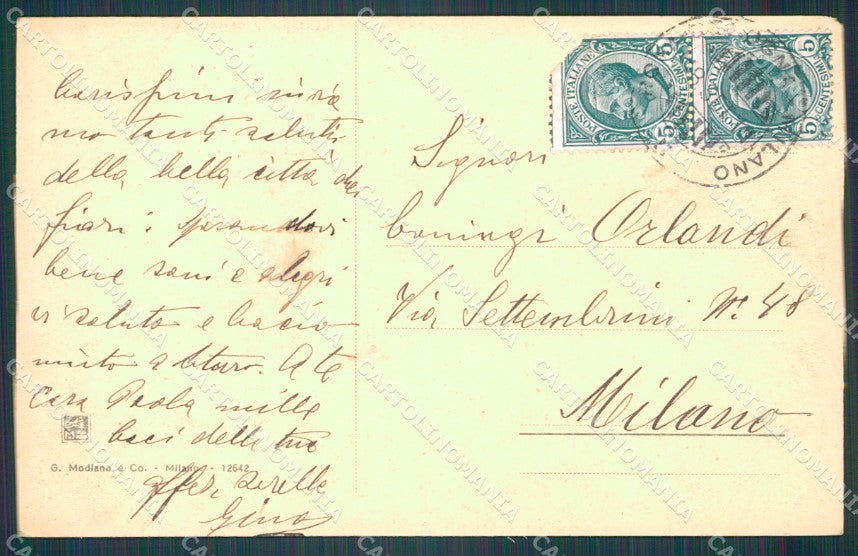 Carissimi invia
mo tanti saluti
della bella città dei
fiori: sperandovi
bene sani e alegri
vi saluto e bacio
unito a Arturo. A te
Cara Paola mille
baci della tua
affez. sorella
Gina
G. Modiano e Co. - Milano - 12642
POSTE ITALIANE
CENTES. 5
POSTE ITALIANE
CENTES. 5
MILANO
Signori
Coniugi Orlandi
Via Settembrini N. 48
Milano
CARTOLINOMANIA